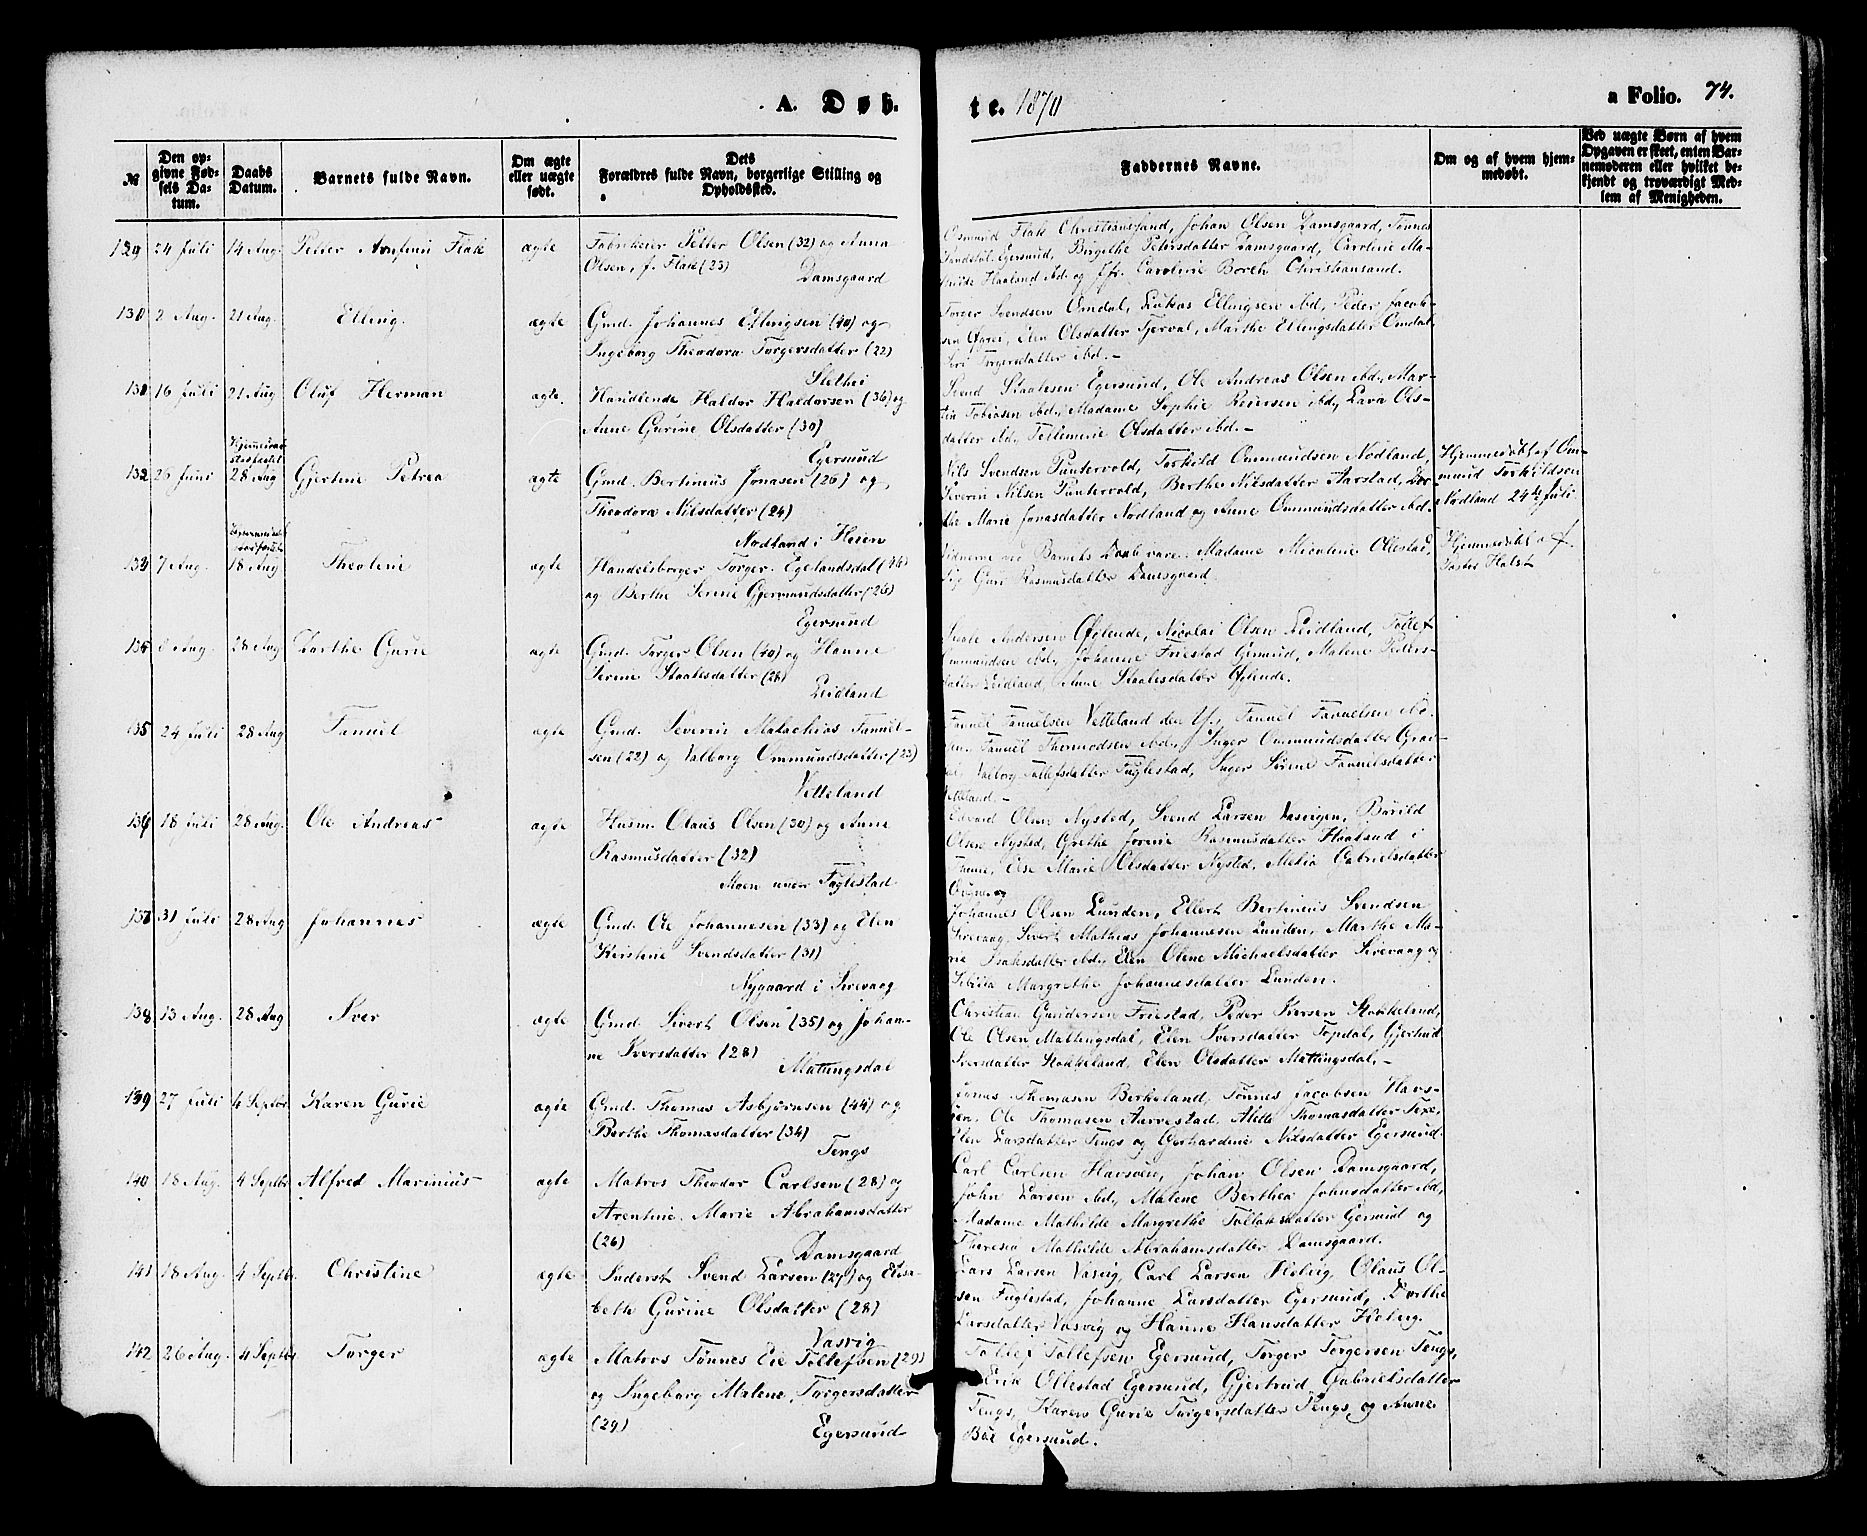 A. Døb.
te. 1870
a Folio. 74.
№
Den opgivne Fødsels Datum.
Daabs Datum.
Barnets fulde Navn.
Om ægte eller uægte født.
Dets Forældres fulde Navn, borgerlige Stilling og Opholdssted.
Faddernes Navne.
Om og af hvem hjemmedøbt.
Ved uægte Børn af hvem Opgaven er skeet, enten Barnemoderen eller hvilket bekjendt og troværdigt Medlem af Menigheden.
129 24 Juli 14 Aug. Petter Flate ægte Petter Olsen (32) og Anna
Olsen, f. Flate (23)
Damsgaard
Osmund Flate Christianssand, Johan Olsen Damsgaard, Tønnes
Egersund, Birgithe Petersdatter Damsgaard, Caroline Ma-
Haaland ibd. og Caroline Boreh Christiansand.
130 2 Aug. 21 Aug. Elling. ægte Gmd. Johannes Ellingsen (40) og
Ingeborg Theodora Torgersdatter (22)
Torger Svendsen Omdal, Lukas Ellingsen ibd, Peder Jacob-
sen Elen Olsdatter Marthe Ellingsdatter Omdal,
Torgersdatter ibd. -
16 Juli 21 Aug Oluf Herman ægte. Handlende Haldor Haldorsen (36) og
Anne Gurine Olsdatter (30)
Egersund
Svend Staalesen Egersund, Ole Andreas Olsen ibd, Mar-
tin Tobiasen ibd, Madame Sophie ibd, Lava Ols-
datter ibd, Olsdatter ibd. -
132 26 Juni 28 Aug Gjertine Petrea ægte Gmd. Bertinius Jonasen (26) og
Theodora Nilsdatter (24)
Nodland i Heien
Nils Svendsen Puntervold, Torkild Ommundsen Nodland,
Severin Nilsen Puntervold, Berthe Nilsdatter Aarstad, Dor-
the Marie Jonasdatter Nodland og Anne Ommundsdatter ibd.
Hjemmedøbt af Om-
mund Torkildsen
Nodland 24de Juli
133 7 Aug. 18 Aug Theoline ægte Handelsborger Torger Egelandsdal
og Berthe Serine Gjermundsdatter (26)
Egersund
Vidnerne ved Barnets Daab vare: Madame Nicoline Ollestad,
Guri Rasmusdatter Damsgaard.
Hjemmedøbt af
Pastor Holst
8 Aug. 28 Aug Dorthe Gurie ægte Gmd. Torger Olsen (40) og Hanne
Serine Staalesdatter (28)
Leidland
Andersen Øglende, Nicolai Olsen Leidland, Tollef
Ommundsen ibd, Johanne Friestad Malene Peders-
datter Leidland, Anne Staalesdatter Øglende.
135 24 Juli 28 Aug Fanuel ægte Gmd. Severin Malachias Fanuel-
sen (22) og Valborg Ommundsdatter (23)
Vetteland
Fanuel Fanuelsen Vetteland den Y., Fanuel Fanuelsen ibd.
Fanuel Thormodsen ibd, Inger Ommundsdatter
Valborg Tollefsdatter Fuglestad, Inger Serine Fanuelsdatter
Vetteland. -
136 18 Juli 28 Aug. Ole Andreas ægte Husm. Olaus Olsen (30) og Anne
Rasmusdatter (32)
Moen under Fuglestad.
Edvard Olsen Nysted, Svend Larsen Vasvigen, Baruld
Olsen Nysted, Grethe Jorine Rasmusdatter Haaland i
Else Marie Olsdatter Nysted, Mekia Gabrielsdatter
137 31 Juli 28 Aug Johannes ægte Gmd. Ole Johannesen (33) og Elen
Kirstine Svendsdatter (31)
Nygaard i Sirevaag
Johannes Olsen Lunden, Ellert Bertinius Svendsen
Sirevaag, Sivert Mathias Johannesen Lunden, Marthe Ma-
rie Isaksdatter ibd, Elen Olene Michaelsdatter Sirevaag og
Margrethe Johannesdatter Lunden.
138 13 Aug. 28 Aug Iver ægte Gmd. Sivert Olsen (35) og Johan-
ne Iversdatter (28)
Mattingsdal
Christian Gundersen Friestad, Peder Iversen Stokkeland,
Ole Olsen Mattingsdal, Elen Iversdatter Topdal, Gjertrud
Iversdatter Stokkeland, Elen Olsdatter Mattingsdal. -
139 27 Juli 4 Septbr. Karen Gurie ægte Gmd. Thomas Asbjørnsen (44) og
Berthe Thomasdatter (34)
Tengs
Thomasen Birkeland, Tønnes Jacobsen Havs-
øen, Ole Thomasen Aarrestad, Mette Thomasdatter Texe,
Elen Larsdatter Tengs og Gerhardine Nilsdatter Egersund.
140 18 Aug. 4 Septbr Alfred Marinius ægte Matros Theodor Carlsen (28) og
Arentine Marie Abrahamsdatter
(26)
Damsgaard
Carl Carlsen Havsøen, Johan Olsen Damsgaard,
John Larsen ibd, Malene Berthea Johnsdatter ibd,
Madame Mathilde Margrethe Tollaksdatter Gersund og
Theresia Mathilde Abrahamsdatter Damsgaard.
141 18 Aug. 4 Septbr. Christine ægte Inderst Svend Larsen (27) og Elisa-
beth Gurine Olsdatter (28)
Vasvig
Lars Larsen Vasvig, Carl Larsen Hobvig, Olaus Ol-
sen Fuglestad, Johanne Larsdatter Egersund, Dorthe
Larsdatter Vasvig og Hanne Hansdatter
142 26 Aug. 4 Septbr Torger ægte Matros Tønnes Eie Tollefsen (29)
og Ingeborg Malene Torgersdatter
(29)
Egersund
Tollef Tollefsen Egersund, Torger Torgersen Tengs,
Erik Ollestad Egersund, Gjertrud Gabrielsdatter
Tengs, Karen Gurie Torgersdatter Tengs og Anne
Bøe Egersund.